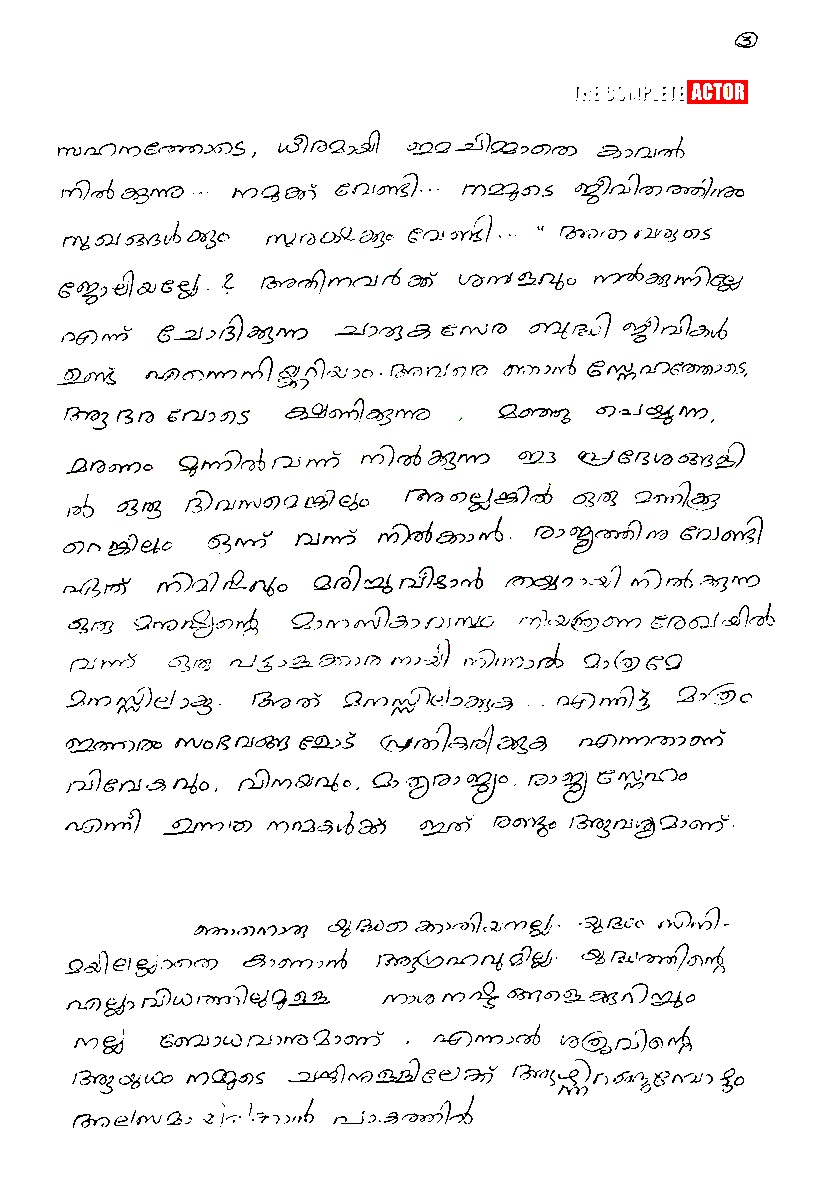 ③
THE COMPLETE ACTOR
സഹനത്തോടെ, ധീരമായി ഇമചിമ്മാതെ കാവൽ
നിൽക്കുന്നു... നമുക്ക് വേണ്ടി... നമ്മുടെ ജീവിതത്തിനും
സുഖങ്ങൾക്കും സുരക്ഷക്കും വേണ്ടി... " അത് അവരുടെ
ജോലിയല്ലേ.? അതിനവർക്ക് ശമ്പളവും നൽകുന്നില്ലേ
എന്ന് ചോദിക്കുന്ന ചാരുകസേര ബുദ്ധി ജീവികൾ
ഉണ്ട് എന്നെനിക്കറിയാം. അവരെ ഞാൻ സ്നേഹത്തോടെ,
ആദരവോടെ ക്ഷണിക്കുന്നു, മഞ്ഞു പെയ്യുന്ന,
മരണം മുന്നിൽ വന്ന് നിൽക്കുന്ന ഈ പ്രദേശങ്ങളി
ൽ ഒരു ദിവസമെങ്കിലും അല്ലെങ്കിൽ ഒരു മണിക്കൂ
റെങ്കിലും ഒന്ന് വന്ന് നിൽക്കാൻ. രാജ്യത്തിനു വേണ്ടി
ഏത് നിമിഷവും മരിച്ചുവീഴാൻ തയ്യാറായി നിൽക്കുന്ന
ഒരു മനുഷ്യന്റെ മാനസികാവസ്ഥ നിയന്ത്രണ രേഖയിൽ
വന്ന് ഒരു പട്ടാളക്കാരനായി നിന്നാൽ മാത്രമേ
മനസ്സിലാകൂ. അത് മനസ്സിലാക്കുക... എന്നിട്ട് മാത്രം
ഇത്തരം സംഭവങ്ങളോട് പ്രതികരിക്കുക എന്നതാണ്
വിവേകവും, വിനയവും, മാതൃരാജ്യം, രാജ്യസ്നേഹം
എന്നീ ഉന്നത നന്മകൾക്ക് ഇത് രണ്ടും ആവശ്യമാണ്.
ഞാനൊരു യുദ്ധക്കൊതിയനല്ല. യുദ്ധം സിനി-
മയിലല്ലാതെ കാണാൻ ആഗ്രഹവുമില്ല. യുദ്ധത്തിന്റെ
എല്ലാവിധത്തിലുമുള്ള നാശനഷ്ടങ്ങളെക്കുറിച്ചും
നല്ല ബോധവാനുമാണ്. എന്നാൽ ശത്രുവിന്റെ
ആയുധം നമ്മുടെ ചങ്കിനുള്ളിലേക്ക് ആഴ്ന്നിറങ്ങുമ്പോളും
അലസമായിരിക്കാൻ പാകത്തിൽ